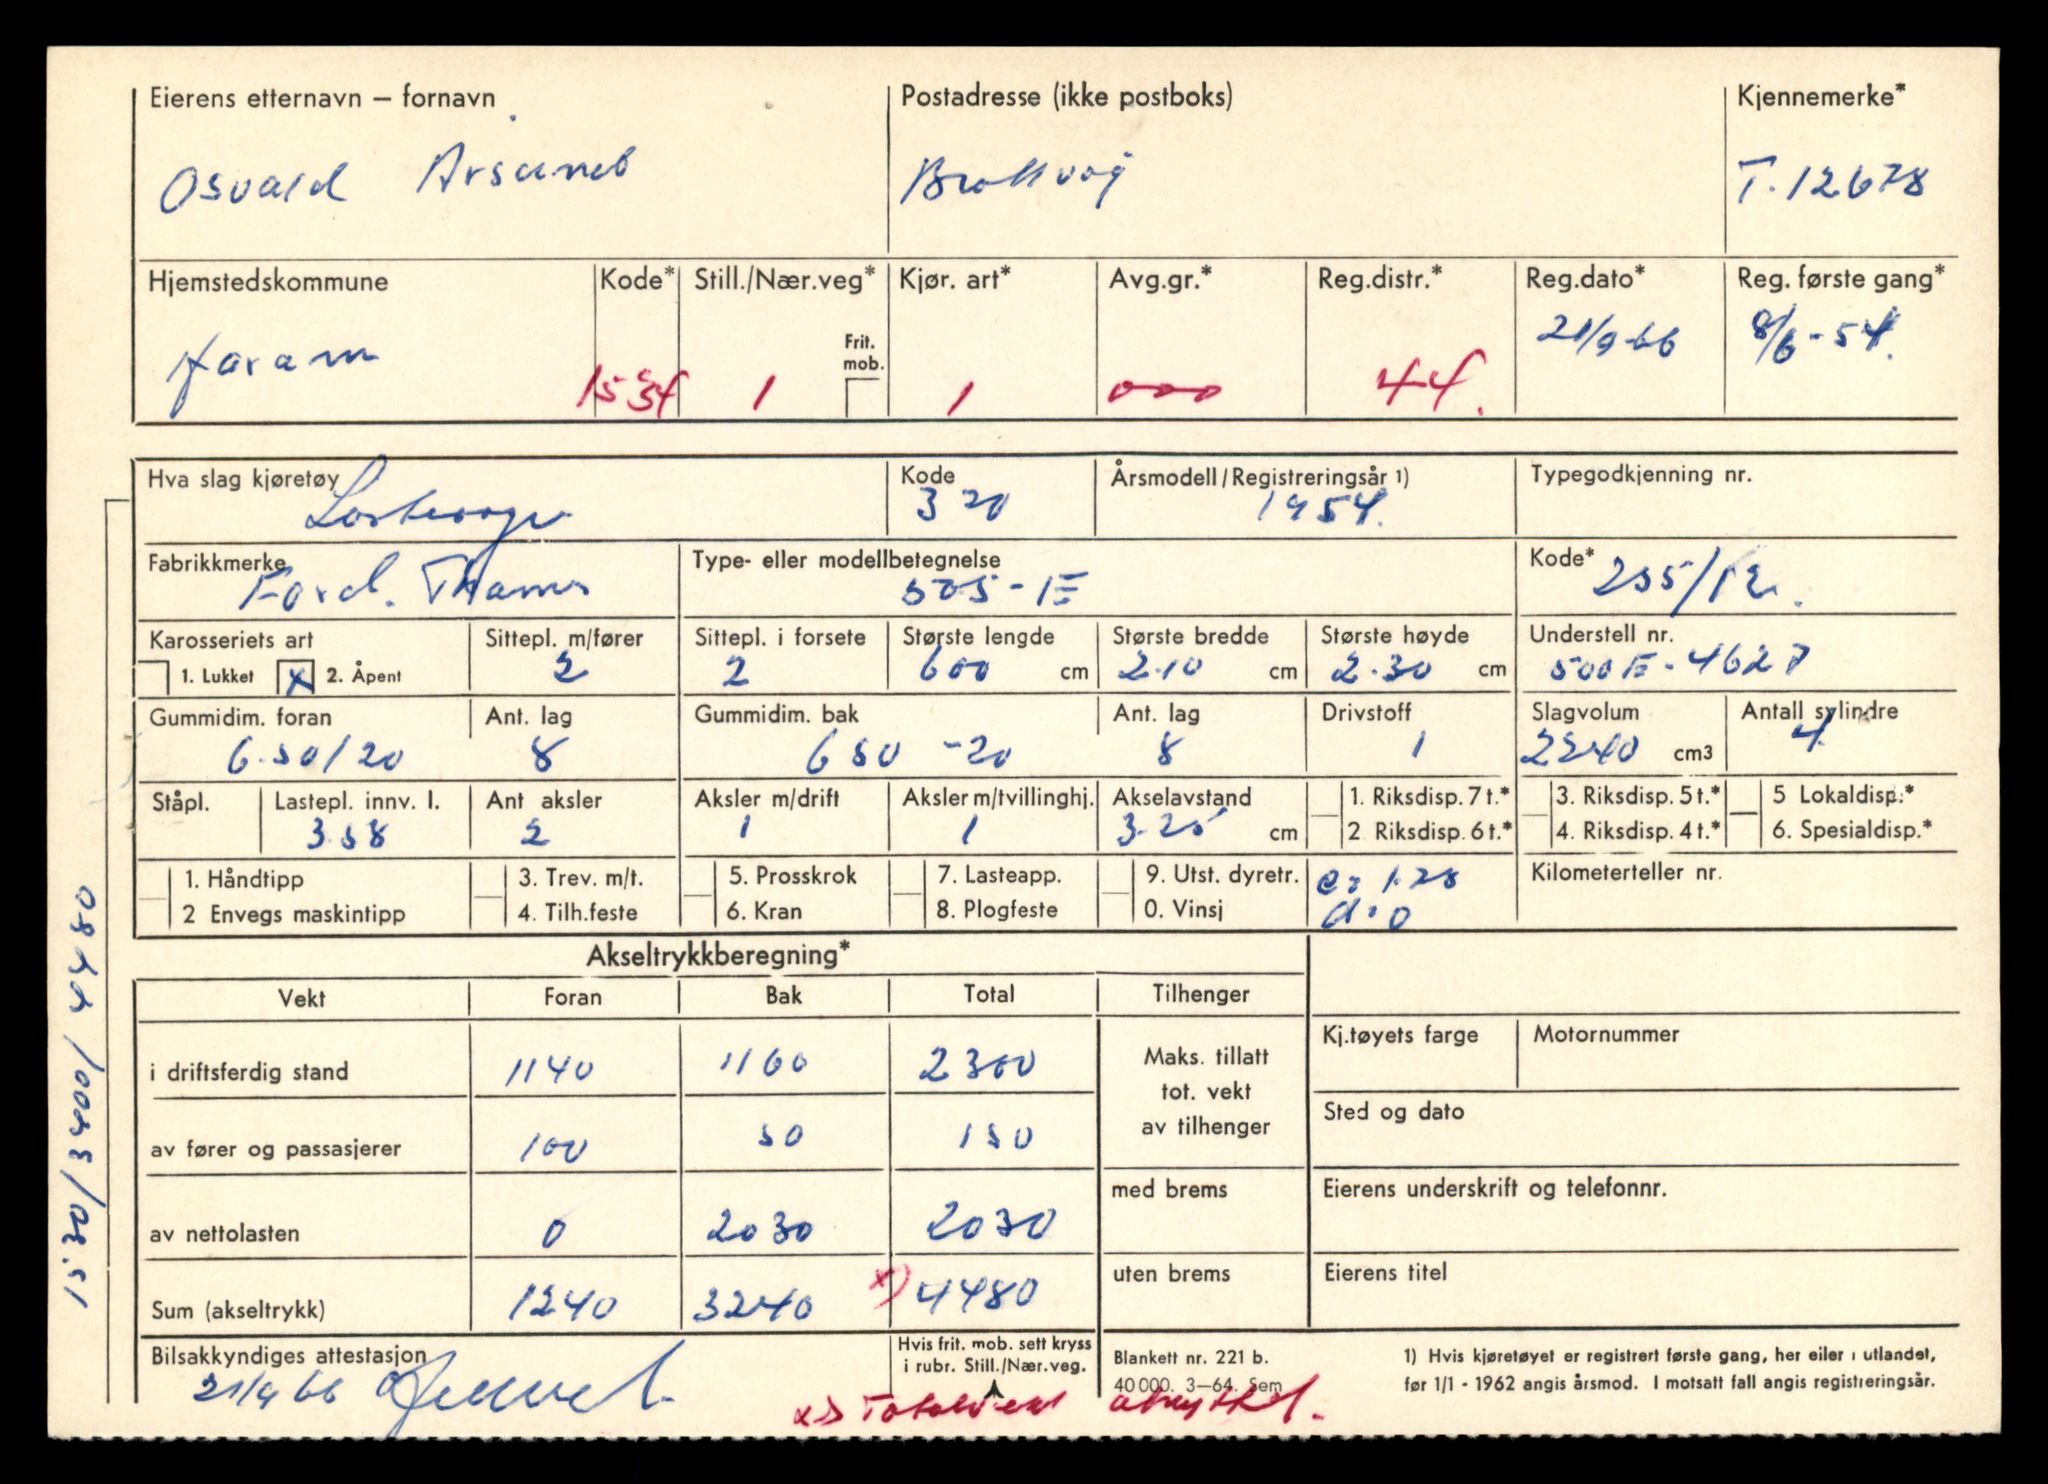 Eierens etternavn – fornavn Postadresse (ikke postboks) Kjennemerke*
Osvald Årsund Brattvåg T. 12678
Hjemstedskommune Kode* Still./Nær.veg* Kjør. art* Avg.gr.* Reg.distr.* Reg.dato* Reg. første gang*
Haram 1534 1 Frit. mob. 1 000 44. 21/9-66 8/6-54.
Hva slag kjøretøy Kode Årsmodell/Registreringsår 1) Typegodkjenning nr.
Lastevogn 320 1954.
Fabrikkmerke Type- eller modellbetegnelse Kode*
Ford. Thames 505-E 255/12.
Karosseriets art Sittepl. m/fører Sittepl. i forsete Største lengde Største bredde Største høyde Understell nr.
1. Lukket X 2. Åpent 2 2 600 cm 2.10 cm 2.30 cm 500E-4627
Gummidim. foran Ant. lag Gummidim. bak Ant. lag Drivstoff Slagvolum Antall sylindre
6.50/20 8 650-20 8 1 2240 cm3 4
Ståpl. Lastepl. innv. l. Ant aksler Aksler m/drift Aksler m/tvillinghj. Akselavstand 1. Riksdisp. 7 t.* 3. Riksdisp. 5 t.* 5 Lokaldisp.*
3.58 2 1 1 3.25 cm 2 Riksdisp. 6 t.* 4. Riksdisp. 4 t.* 6. Spesialdisp.*
1. Håndtipp 3. Trev. m/t. 5. Prosskrok 7. Lasteapp. 9. Utst. dyretr. e: 1.28 Kilometerteller nr.
2 Envegs maskintipp 4. Tilh.feste 6. Kran 8. Plogfeste 0. Vinsj d: 0
Akseltrykkberegning*
Vekt Foran Bak Total Tilhenger
i driftsferdig stand 1140 1160 2300 Maks. tillatt tot. vekt av tilhenger Kj.tøyets farge Motornummer
av fører og passasjerer 100 50 150 Sted og dato
av nettolasten 0 2030 2030 med brems Eierens underskrift og telefonnr.
Sum (akseltrykk) 1240 3240 x) 4480 uten brems Eierens titel
Bilsakkyndiges attestasjon Hvis frit. mob. sett kryss i rubr. Still./Nær.veg. Blankett nr. 221 b. 1) Hvis kjøretøyet er registrert første gang, her eller i utlandet,
21/9 66 40 000. 3–64. Sem før 1/1 - 1962 angis årsmod. I motsatt fall angis registreringsår.
x) Totalvekt